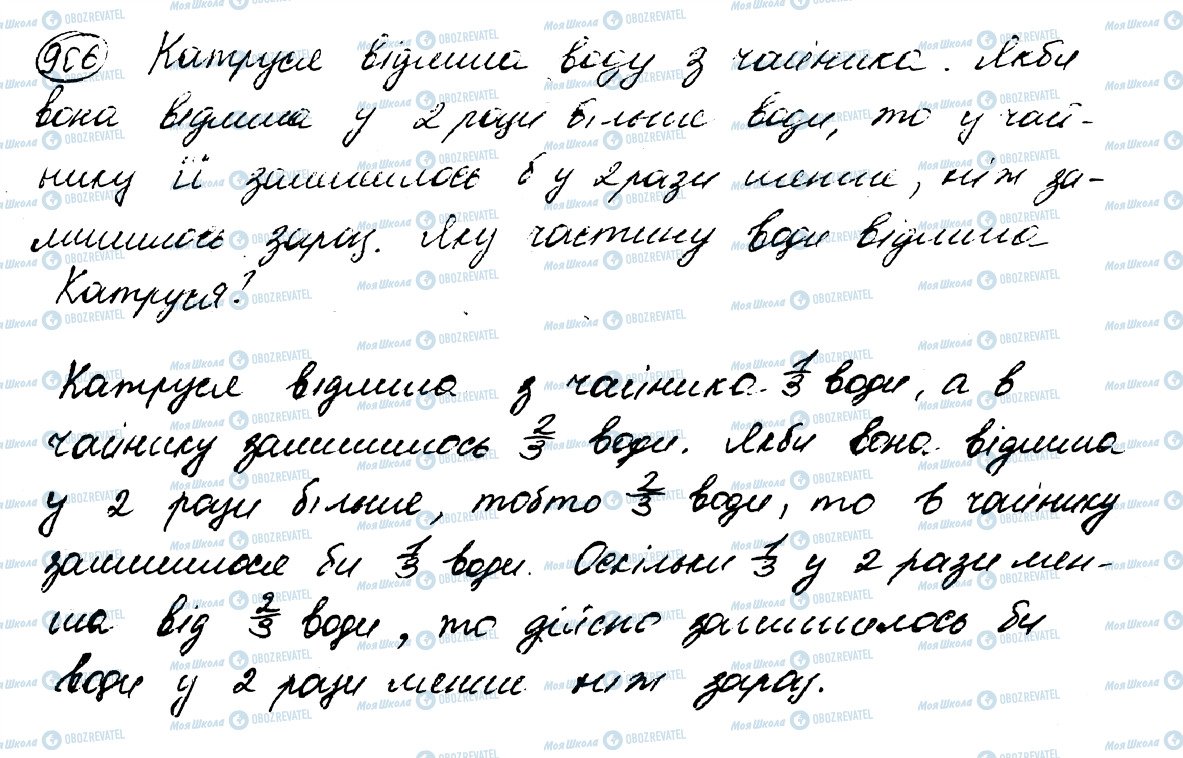 956 Катруся відлила воду з чайника. Якби
вона відлила у 2 рази більше води, то у чай-
нику її залишилось б у 2 рази менше, ніж за-
лишилось зараз. Яку частину води відлила
Катруся?
Катруся відлила з чайника 1/3 води, а в
чайнику залишилось 2/3 води. Якби вона відлила
у 2 рази більше, тобто 2/3 води, то в чайнику
залишилося би 1/3 води. Оскільки 1/3 у 2 рази мен-
ша від 2/3 води, то дійсно залишилось би
води у 2 рази менше ніж зараз.
МояШкола OBOZREVATEL